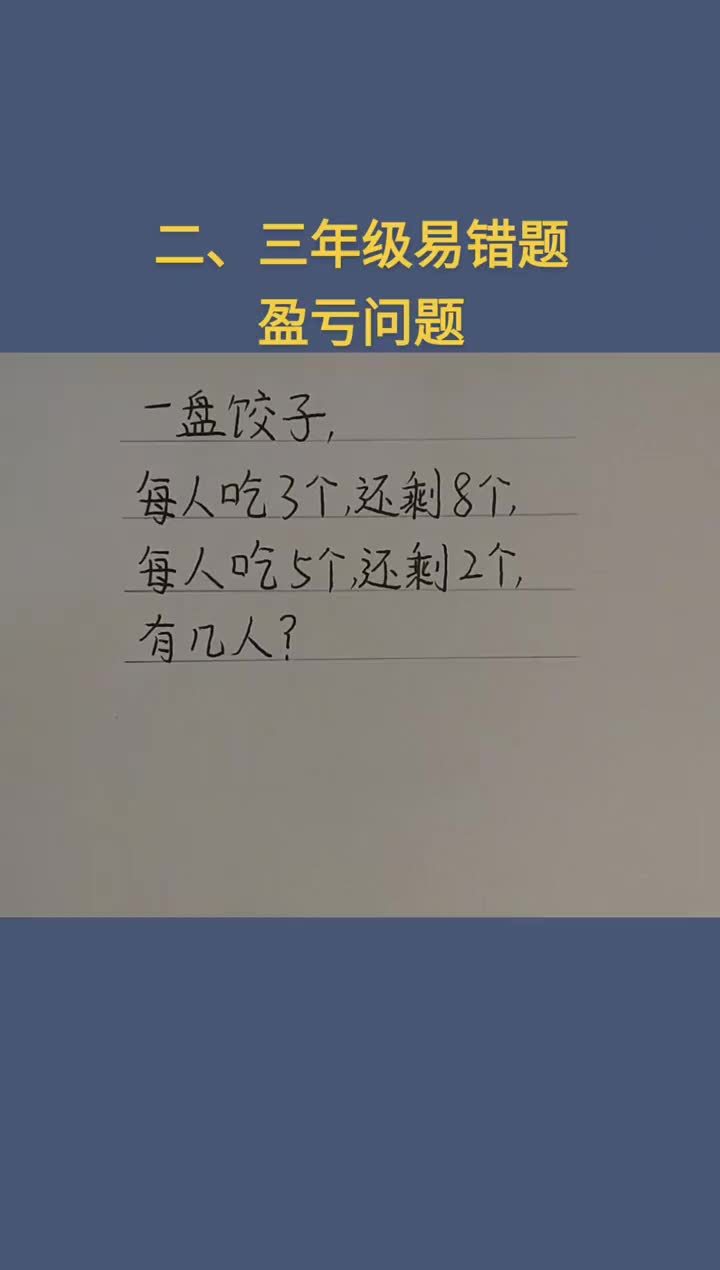 二、三年级易错题
盈亏问题
一盘饺子,
每人吃3个,还剩8个,
每人吃5个,还剩2个,
有几人?